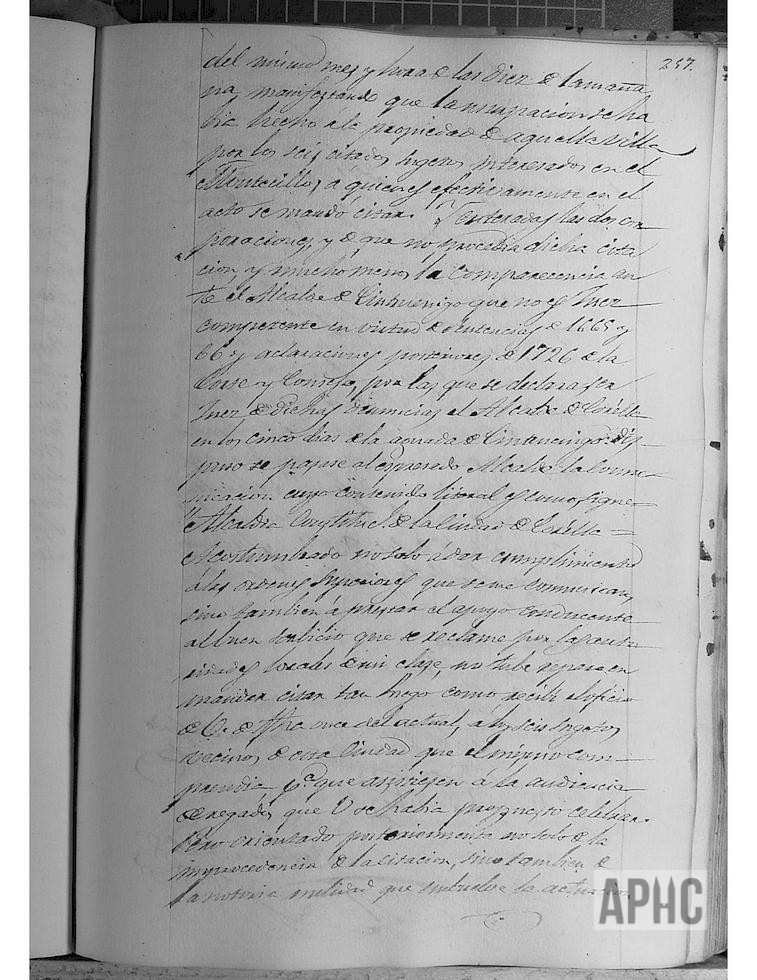 257.
del mismo mes y hora de las diez de la maña
na manifestando que la usurpacion se ha
bia hecho a la propiedad de aquella villa
por los seis citados sugetos interesados en el
Montecillo, a quienes efectivamente en el
acto se mandó citar. Y enteradas las dos cor
poraciones, y de que no procedia dicha cita
cion y mucho menos la comparecencia an
te el Alcalde de Cintruenigo que no es Juez
competente en virtud de sentencias de 1665 y
66 y aclaraciones posteriores de 1726 de la
Corte y Consejo, por las que se declara ser
Juez de dichas denuncias el Alcalde de Corella
en los cinco dias de la aguada de Cintruenigo: dis
puso se pasase al espresado Alcalde la comu
nicacion cuyo contenido literal es como sigue =
"Alcaldia Constitucl. de la Ciudad de Corella =
Acostumbrado no solo á dar cumplimiento
á las ordenes superiores que se me comunican,
sino tambien á prestar el apoyo conducente
al buen servicio que se reclame por las auto
ridades locales de mi clase, no tube reparo en
mandar citar tan luego como recibi el oficio
de V. de fha once del actual, á los seis sugetos
vecinos de esta Ciudad que el mismo com
prendia pa. que asistiesen á la audiencia
de regadío que V. se habia propuesto celebrar.
Pero orientado posteriormente no solo de la
improcedencia de la citacion, sino tambien de
la notoria nulidad que embuelve la actuacion
APHC